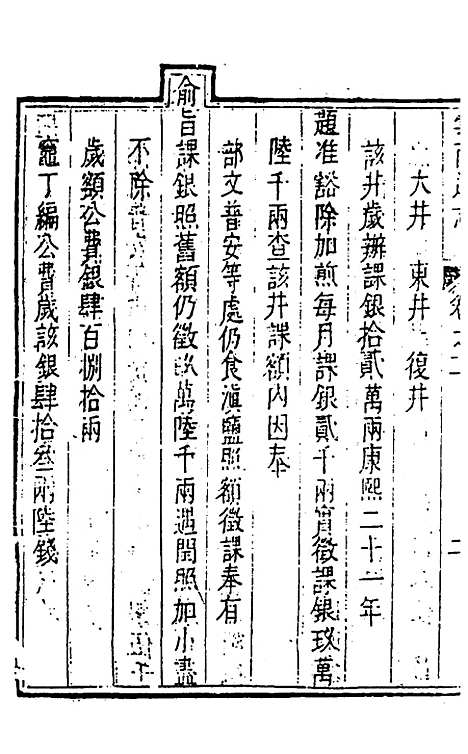 大井 東井 復井
該井歲辦課銀拾貳萬兩康熙二十一年
題准豁除加煎每月課銀貳千兩實徵課銀玖萬
陸千兩查該井課額內因奉
部文普安等處仍食滇鹽照額徵課奉有
俞旨課銀照舊額仍徵玖萬陸千兩遇閏照加小盡
不除
歲額公費銀肆百捌拾兩
竈丁編公費歲該銀肆拾叁兩陸錢